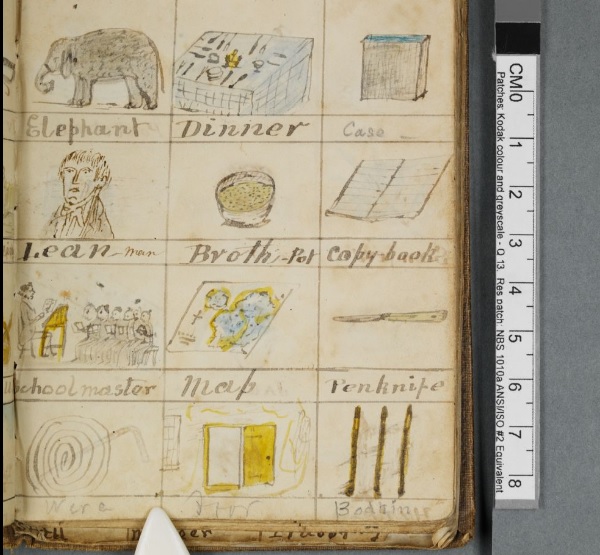 Elephant Dinner Case
Lean-man Broth-Pot Copy-book
Schoolmaster Map Penknife
Wire Door
CM 0 1 2 3 4 5 6 7 8
Patches: Kodak colour and greyscale - Q 13 Res patch: NBS 1010a ANSI/ISO #2 Equivalent